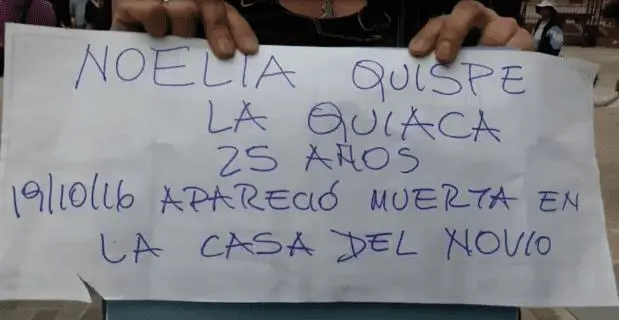 NOELIA QUISPE
LA QUIACA
25 AÑOS
19/10/16 APARECIÓ MUERTA EN
LA CASA DEL NOVIO